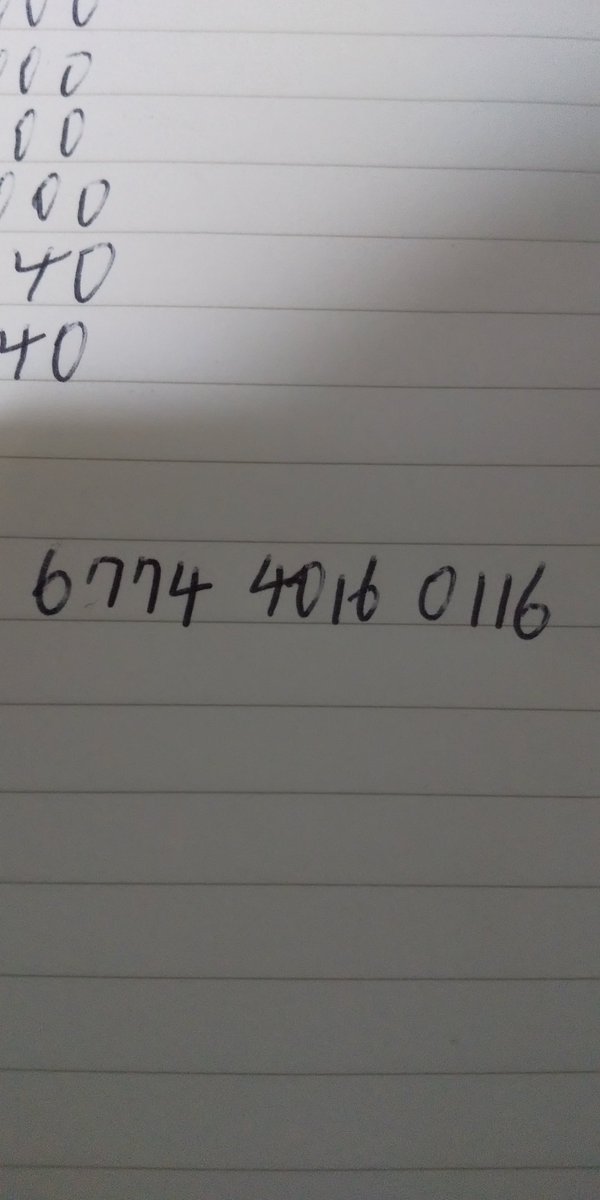 00
000
00
000
40
40
6774 4016 0116